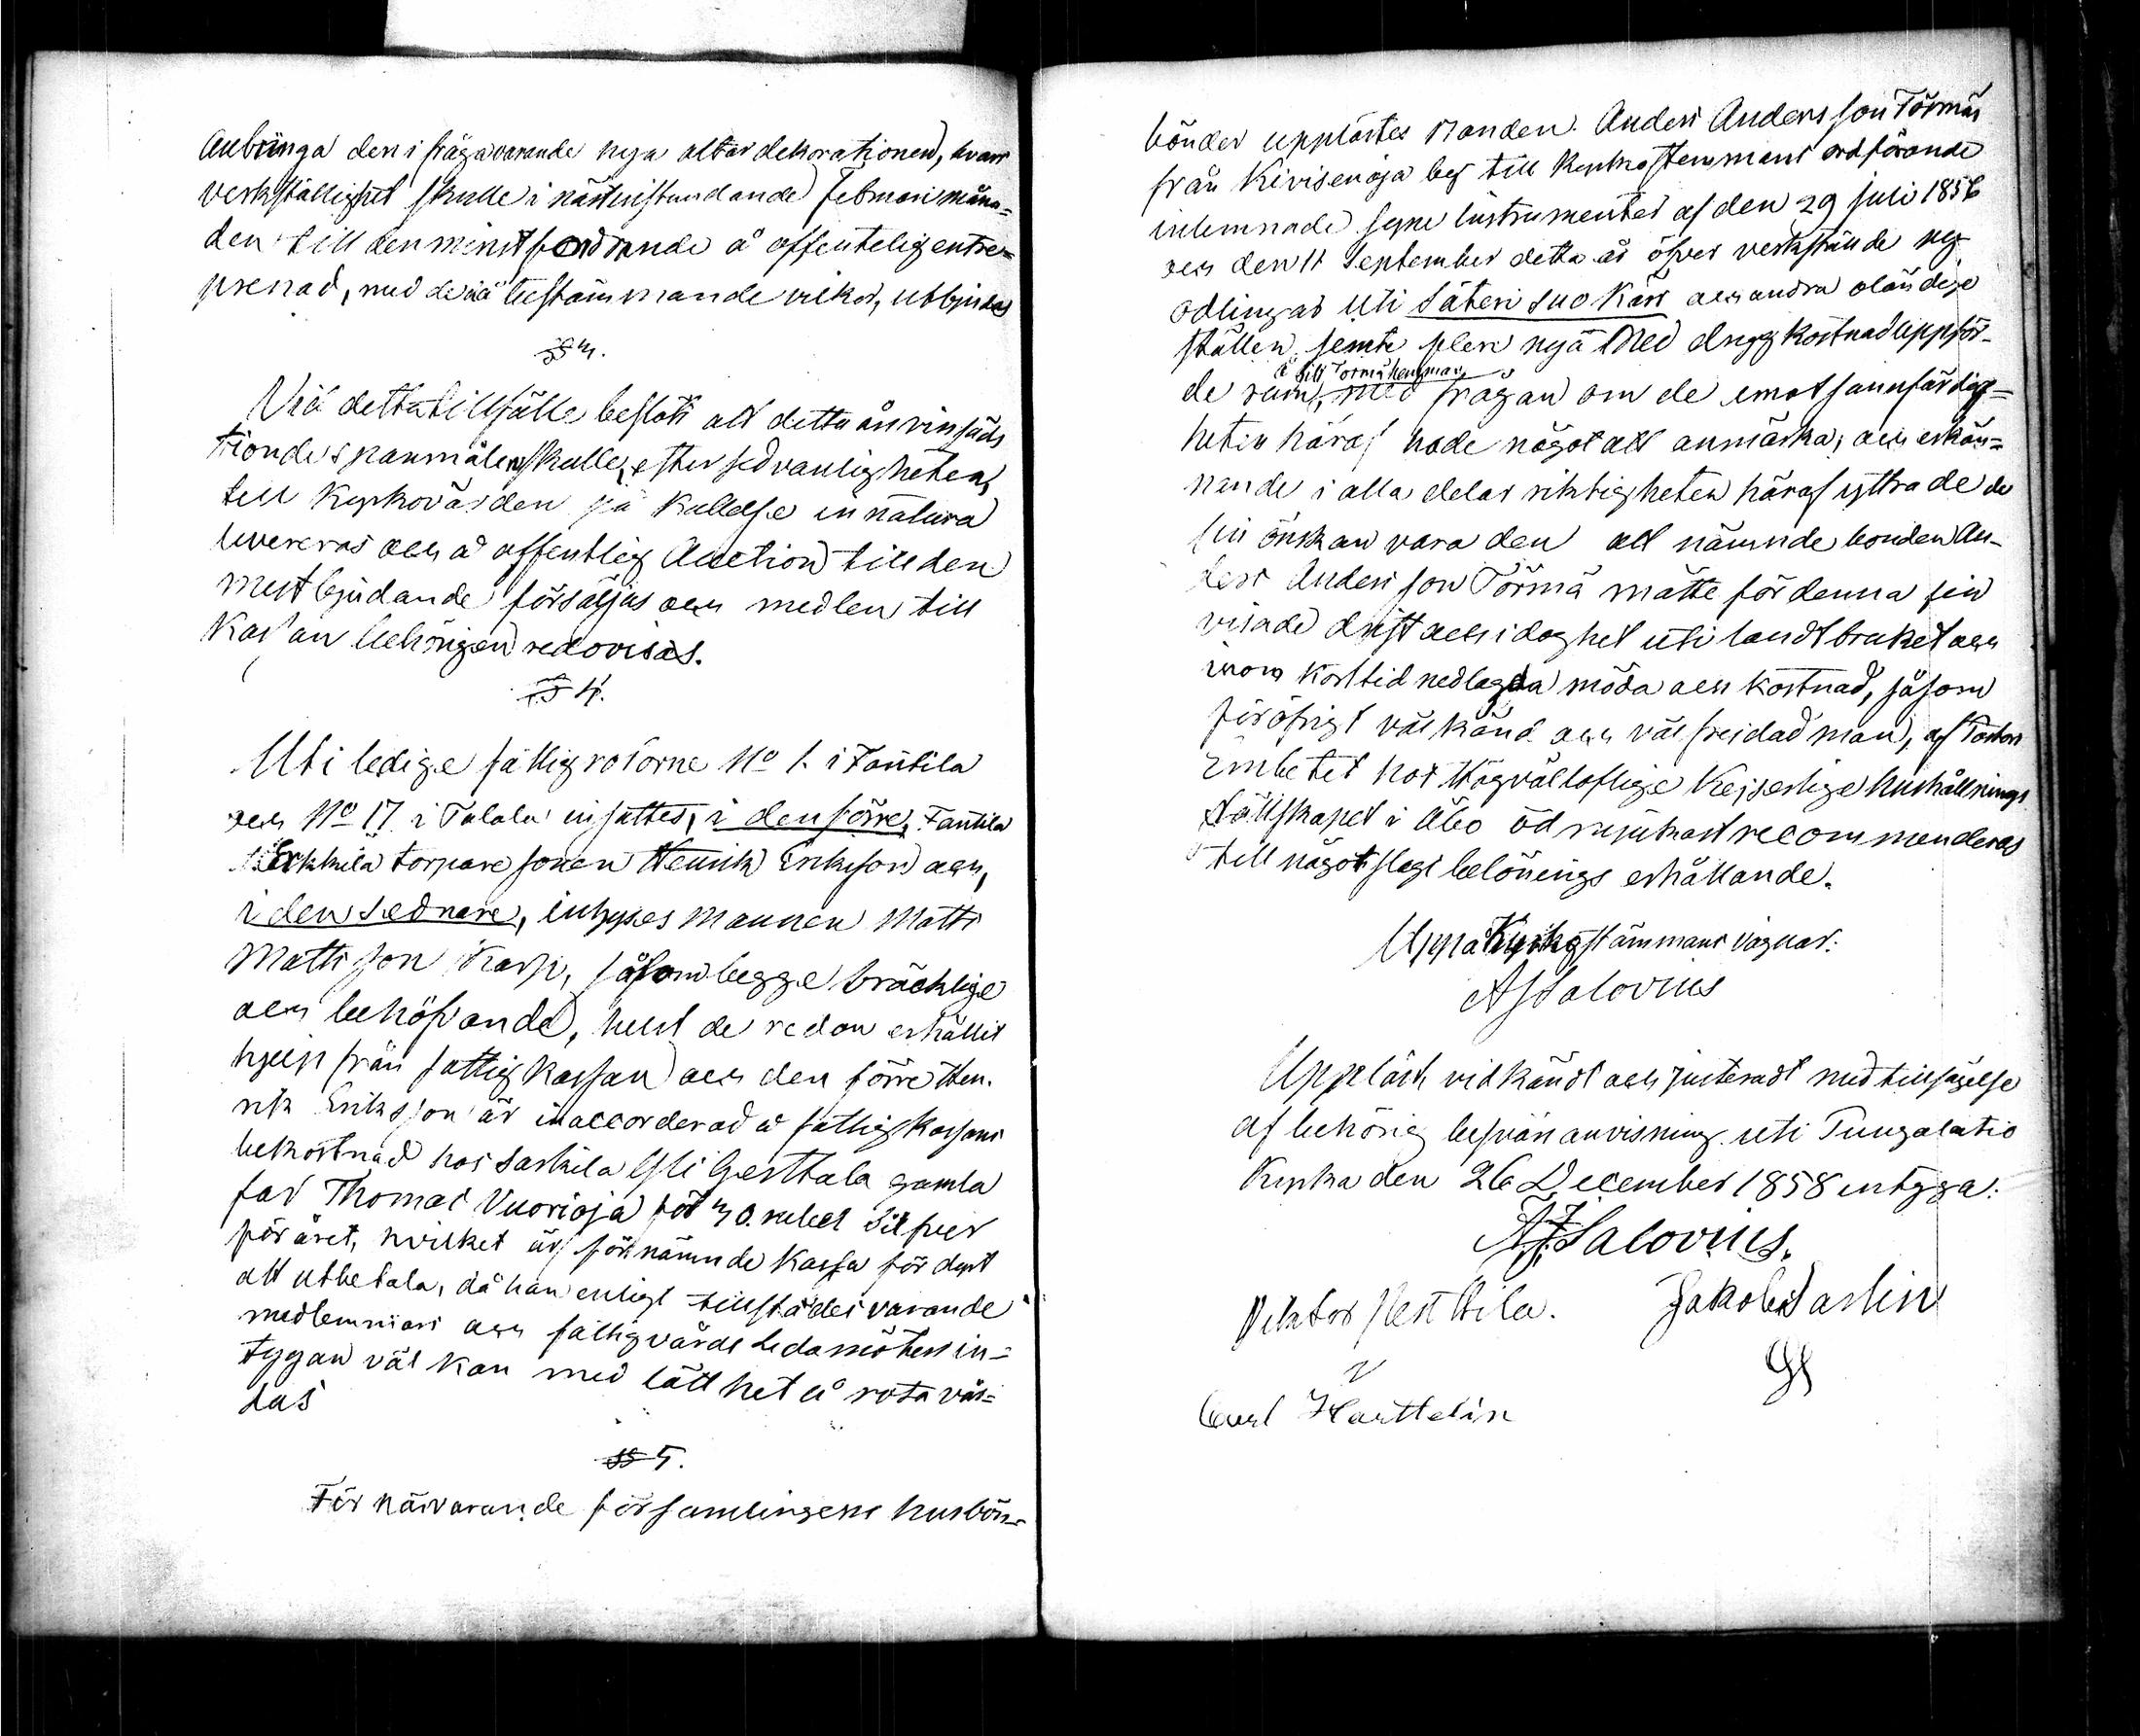 anbringa den i frågavarande nya altar dekorationen, hvars
verkställighet skulle i nästinstundande Februari måna=
den till den minstfordrande å offentelig entre=
prenad, med de då bestämmande vilkor, utbjudas
§ 3.
Vid detta tillfälle beslöts att detta års vinsäds
tionde spanmålen skulle, efter sedvanligheten,
till Kyrkovärden på kallelse in natura
levereras och å offentlig Auction till den
mest bjudande försäljas och medlen till
Kassan behörigen redovisas.
§ 4.
Uti ledige fattigrotorne No 1. i Fantila
och No 17 i Talala insattes, i den förre, Fantila
Erkkila torpare sonen Henrik Erikson och,
i den sednare, inhyses mannen Matts
Mattsson Karp, såsom begge bräcklige
och behöfvande, helst de redan erhållit
hjelp från fattig kassan och den förre Hen-
rik Eriksson är inaccorderad å fattig kassans
bekostnad hos Gerttala gamla
far Thomas Vuorioja för 30 rubel Silfver
för året, hvilket är förnämnde Kassa för dryt
att utbetala, då han enligt tillstädes varande
medlemmars och fattigvårds ledamöters in=
tygan väl kan med lätthet å rota vår=
das
§ 5.
För närvarande församlingens husbön-
bönder upplästes Bonden Anders Andersson Törmäs
från Kivisenoja by till Kyrkostemmans ordförande
inlemnade syne Instrumenter af den 29 juli 1856
och den 11 September detta år öfver verkstälde ny
odlingar uti Säteri suo Kärr och andra oländige
ställen, jemte flere nya med drygg kostnad uppför-
å sitt Törmä hemman
de rum, med frågan om de emot sannfärdig=
heten häraf hade något att anmärka; och erkän=
nande i alla delar riktigheten häraf yttrade de
sin önskan vara den att nämnde bonden An-
ders Andersson Törmä måtte för denna sin
visade drift och idoghet uti landtbruket och
inom kort tid nedlagda möda och kostnad, såsom
för öfrigt väl känd och väl frejdad man, af Pastors
Embetet hos Högvälloflige Kejserlige Hushållnings
Sällskapet i Åbo ödmjukast recommenderas
till något slags belönings erhållande.
Uppå Kyrkostämmans vägnar:
A J Salovius
Uppläst, vidkändt och justeradt med tillsägelse
af behörig besvärs anvisning uti Pungalaitio
Kyrka den 26 December 1858 intyga:
A J Salovius.
Viktor Perttila. Jakob Sarlin
Carl Harttelin